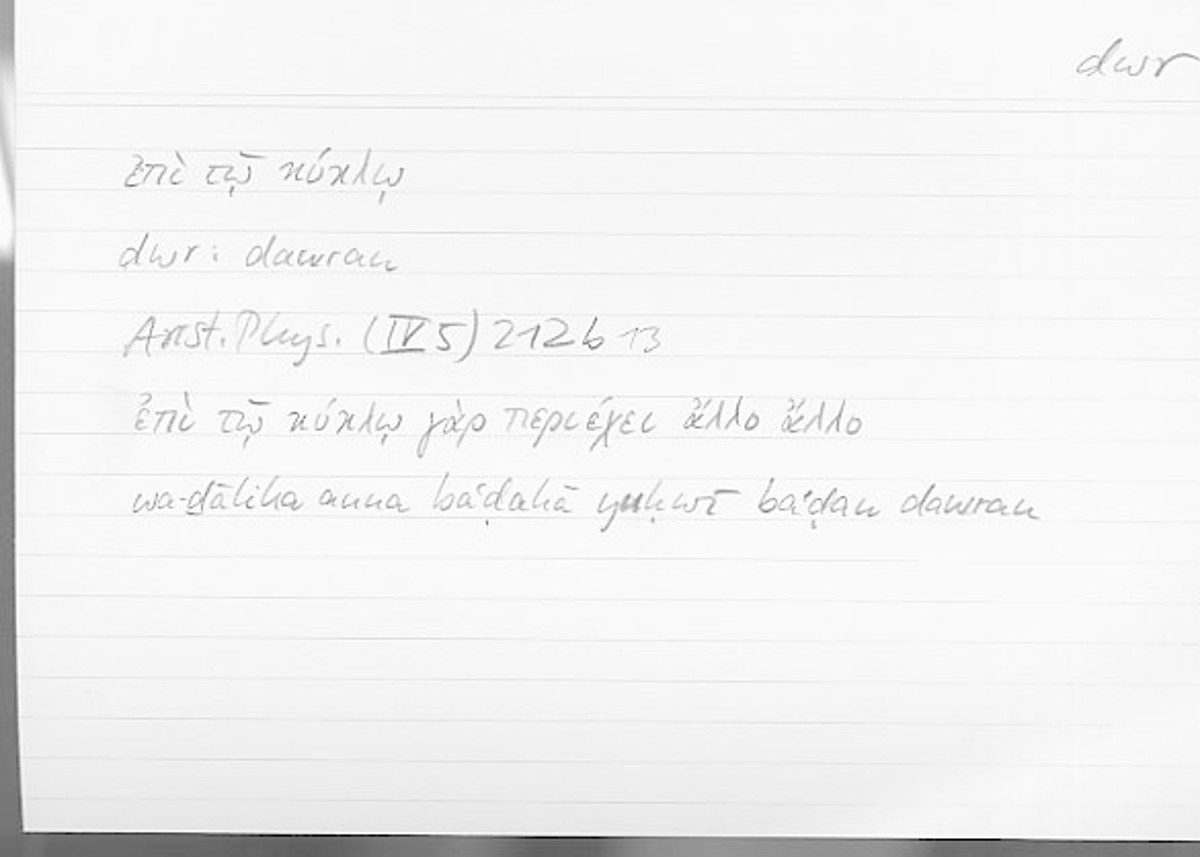 dwr
ἐπὶ τῷ κύκλῳ
dwr: dawran
Arist. Phys. (IV 5) 212b 13
ἐπὶ τῷ κύκλῳ γὰρ περιέχει ἄλλο ἄλλο
wa-ḏālika anna baʿḍahā yuḥwī baʿḍan dawran